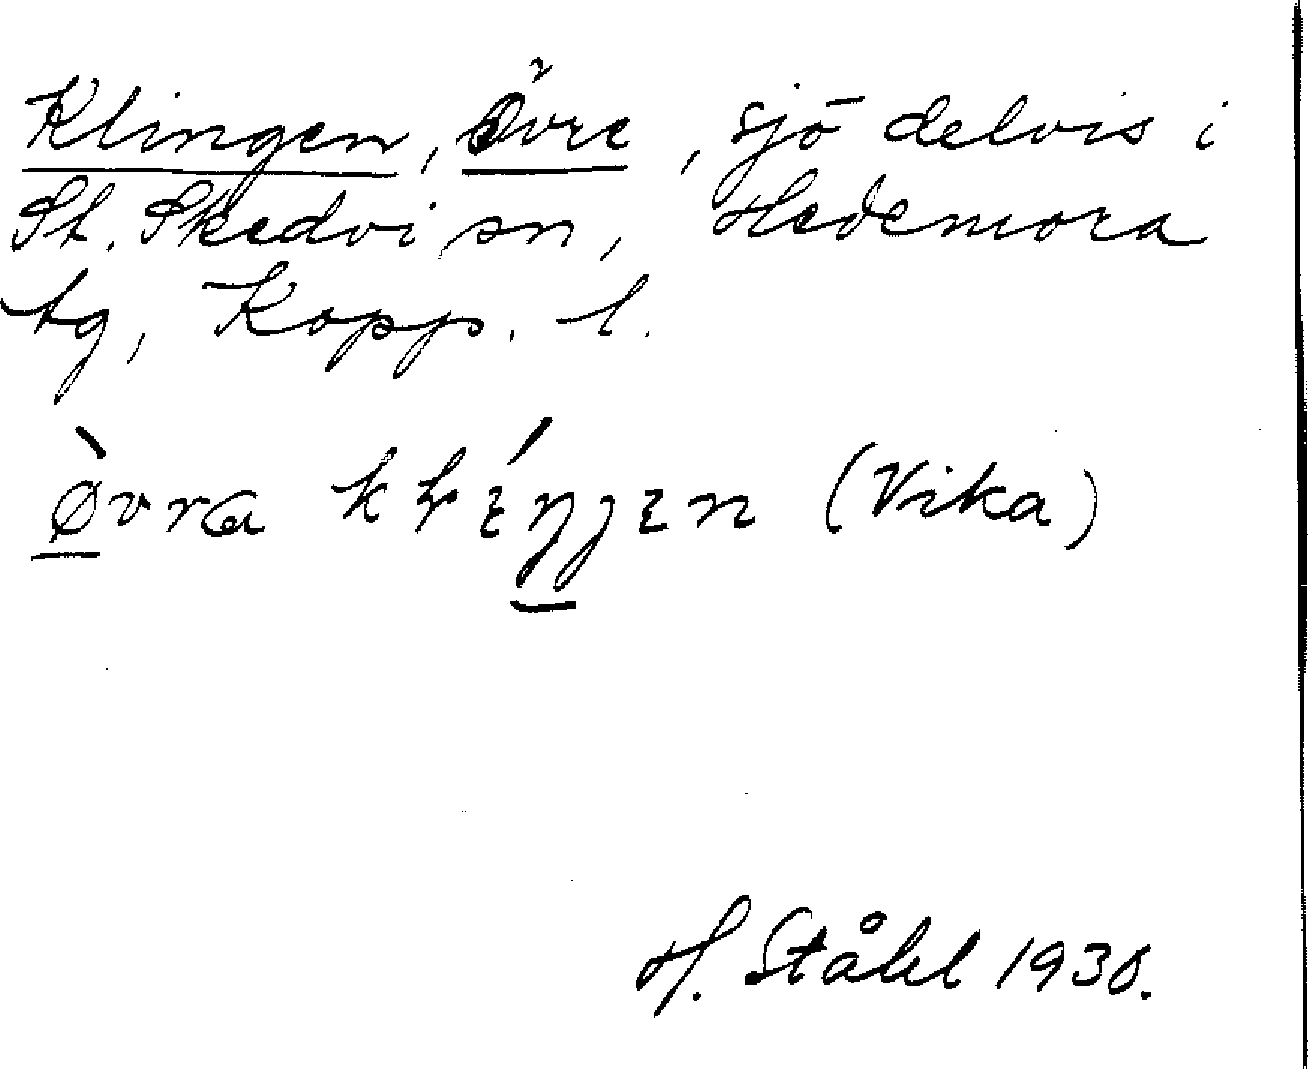 Klingen, Övre, sjö delvis i
St. Skedvi sn, Hedemora
tg, Kopp. l.
(Vika)
H. Ståhl 1930.